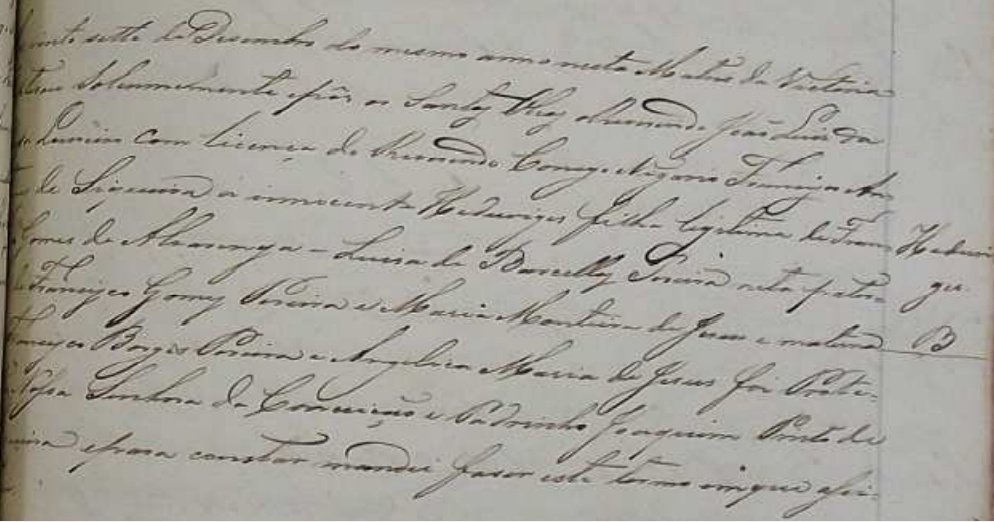 vinte sette de Desembro do mesmo anno nesta Matris da Victoria
Solennemente e pôs os Santos Oleos o Reverendo João Luis da
com licença do Reverendo Conego Vigario Francisco An-
de Siqueira a innocente Heduviges filha legitima de Fran-
Heduvi-
Gomes de Alvarenga - Luisa de Barcellos Pereira neta patér-
ges.
de Francisco Gomes Pereira e Maria Monteira de Jesus e materna
B
Francisco Borges Pereira e Angelica Maria de Jesus foi Prote-
Nossa Senhora da Conceição e Padrinho Joaquim Pinto de
e para constar mandei faser este termo em que asi-